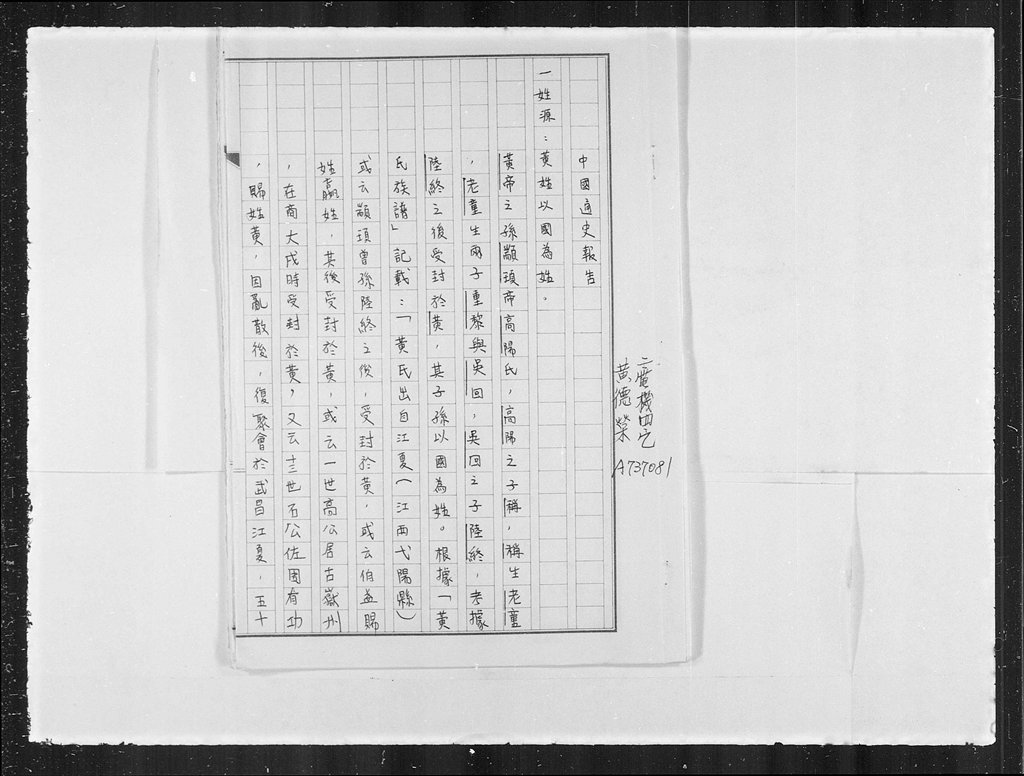 三電機四乞
黃德榮
A737081
中國通史報告
一姓源：黃姓以國為姓。
黃帝之孫顓頊帝高陽氏，高陽之子稱，稱生老童
，老童生兩子重黎與吳回，吳回之子陸終，考據
陸終之後受封於黃，其子孫以國為姓。根據「黃
氏族譜」記載：「黃氏出自江夏（江西弋陽縣）
或云顓頊曾孫陸終之後，受封於黃，或云伯益賜
姓嬴姓，其後受封於黃，或云一世高公居古嶽州
，在商大戊時受封於黃，又云十三世石公佐周有功
，賜姓黃，因亂散後，復聚會於武昌江夏，五十